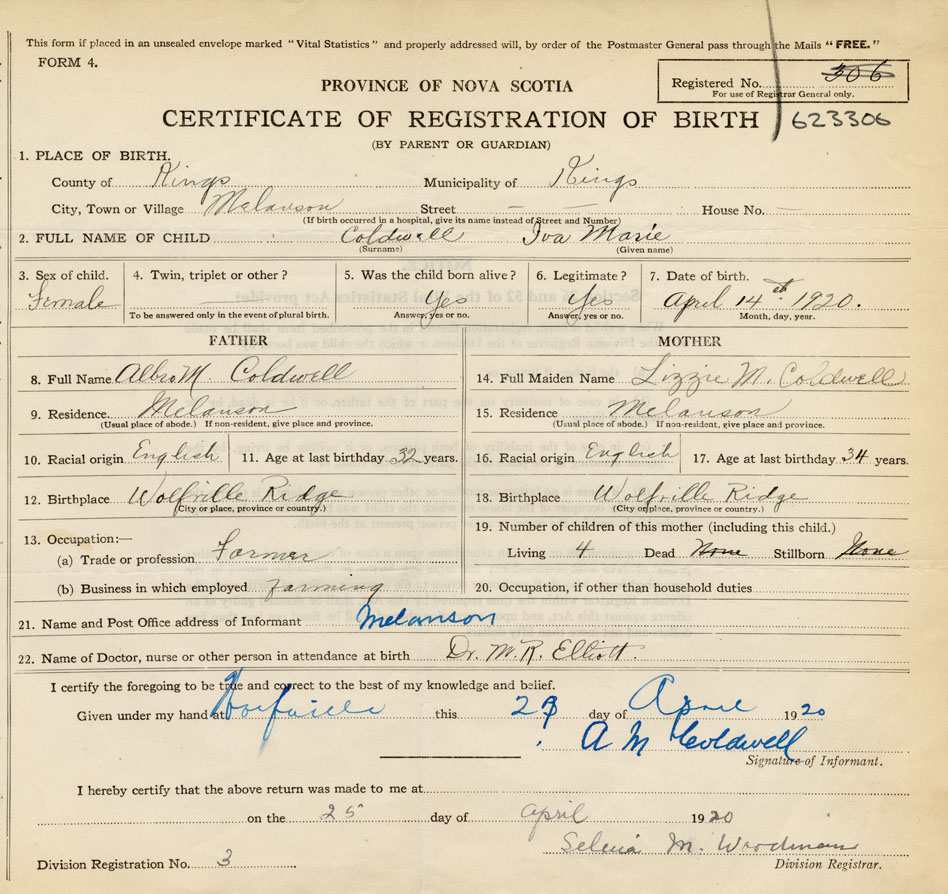 This form if placed in an unsealed envelope marked "Vital Statistics" and properly addressed will, by order of the Postmaster General pass through the Mails "FREE."
FORM 4.
PROVINCE OF NOVA SCOTIA
Registered No. 306
For use of Registrar General only.
CERTIFICATE OF REGISTRATION OF BIRTH
623306
(BY PARENT OR GUARDIAN)
1. PLACE OF BIRTH.
County of Kings Municipality of Kings
City, Town or Village Melanson Street — — House No. —
(If birth occurred in a hospital, give its name instead of Street and Number)
2. FULL NAME OF CHILD Coldwell Iva Marie
(Surname) (Given name)
3. Sex of child. 4. Twin, triplet or other? 5. Was the child born alive? 6. Legitimate? 7. Date of birth.
Female — Yes Yes April 14th 1920.
To be answered only in the event of plural birth. Answer, yes or no. Answer, yes or no. Month, day, year.
FATHER MOTHER
8. Full Name Albro M Coldwell 14. Full Maiden Name Lizzie M. Coldwell
9. Residence. Melanson 15. Residence Melanson
(Usual place of abode.) If non-resident, give place and province. (Usual place of abode.) If non-resident, give place and province.
10. Racial origin English 11. Age at last birthday 32 years. 16. Racial origin English 17. Age at last birthday 34 years.
12. Birthplace Wolfville Ridge 18. Birthplace Wolfville Ridge
(City or place, province or country.) (City or place, province or country.)
13. Occupation:— 19. Number of children of this mother (including this child.)
(a) Trade or profession Farmer Living 4 Dead None Stillborn None
(b) Business in which employed Farming 20. Occupation, if other than household duties
21. Name and Post Office address of Informant Melanson
22. Name of Doctor, nurse or other person in attendance at birth Dr. M. R. Elliott.
I certify the foregoing to be true and correct to the best of my knowledge and belief.
Given under my hand at Wolfville this 23 day of April 1920
A M Coldwell
Signature of Informant.
I hereby certify that the above return was made to me at
on the 25 day of April 1920
Selina M. Woodman
Division Registration No. 3 Division Registrar.